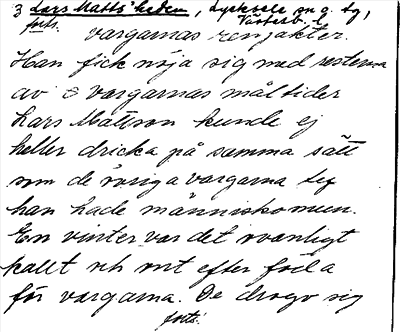 3 Lars Matts' heden, Lycksele sn o. tg,
forts. Västerb. l.
vargarnas renjakter.
Han fick nöja sig med resterna
av vargarnas måltider
Lars Mattson kunde ej
heller dricka på samma sätt
som de övriga vargarna ty
han hade människomun.
En vinter var det ovanligt
kallt och ont efter föda
för vargarna. De drogo sig
forts.